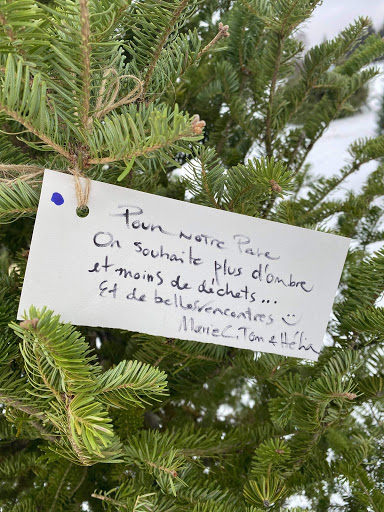 Pour notre Parc
On souhaite plus d'ombre
et moins de déchets...
Et de belles rencontres :)
Marie C, Tom &